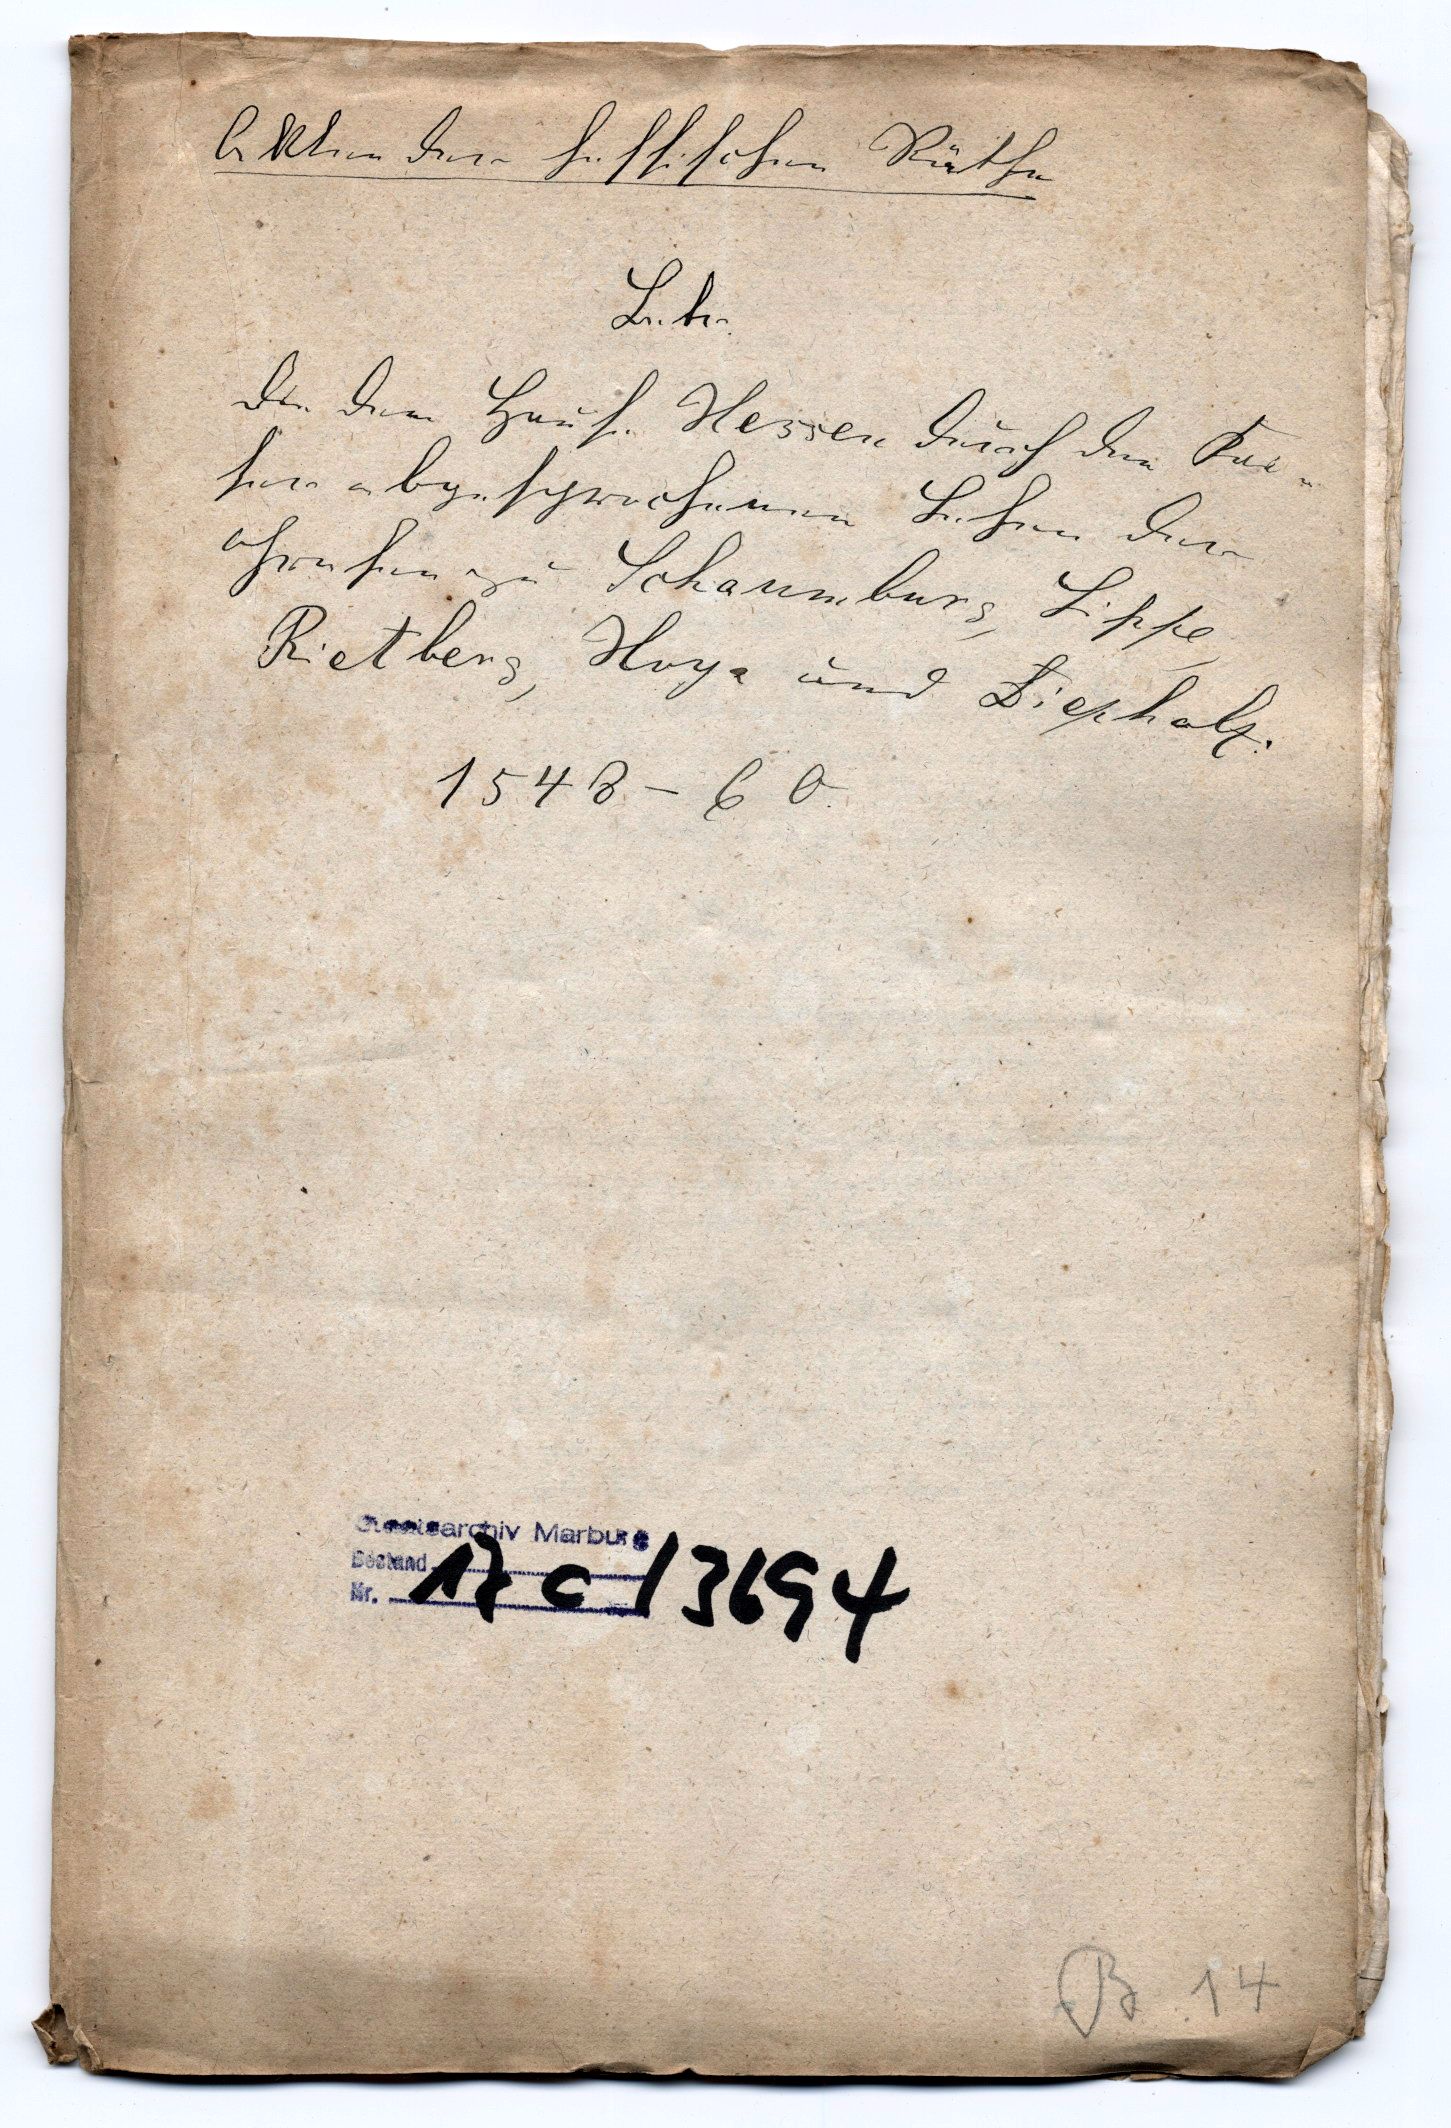 Akten der hessischen Räthe
Betr.
die dem Hause Hessen durch den Kai-
ser abgesprochenen Lehen der
Grafen zu Schaumburg, Lippe,
Rietberg, Hoya und Diepholz.
1548-60.
Staatsarchiv Marburg
Bestand
Nr. 17 c / 3694
B 14